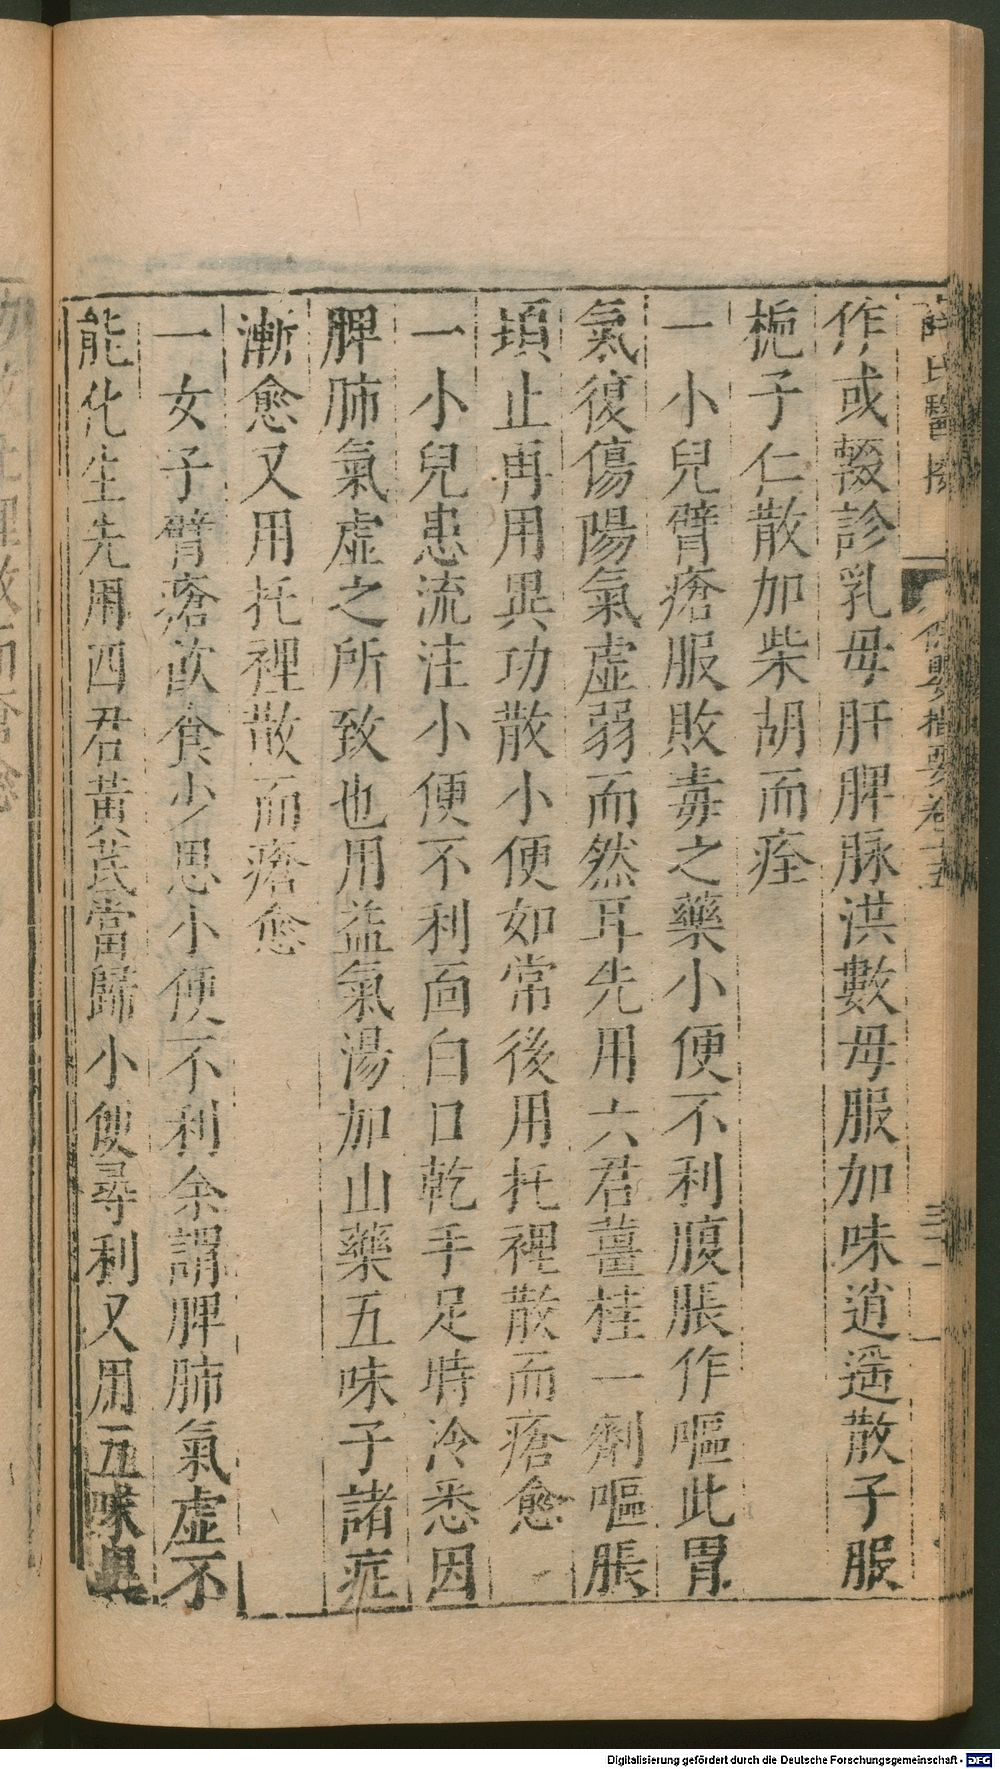 薛氏醫按 保嬰撮要卷十五 三一
作或輟診乳母肝脾脉洪數母服加味逍遥散子服
梔子仁散加柴胡而痊
一小兒臂瘡服敗毒之藥小便不利腹脹作嘔此胃
氣復傷陽氣虚弱而然耳先用六君薑桂一劑嘔脹
頃止再用異功散小便如常後用托裡散而瘡愈
一小兒患流注小便不利面白口乾手足時冷悉因
脾肺氣虚之所致也用益氣湯加山藥五味子諸症
漸愈又用托裡散而瘡愈
一女子臂瘡飲食少思小便不利余謂脾肺氣虚不
能化生先用四君黃芪當歸小便尋利又用五味異
Digitalisierung gefördert durch die Deutsche Forschungsgemeinschaft - DFG